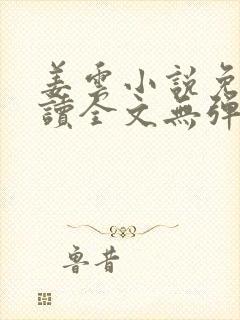 姜雲小說免
讀全文無彈
魯昔